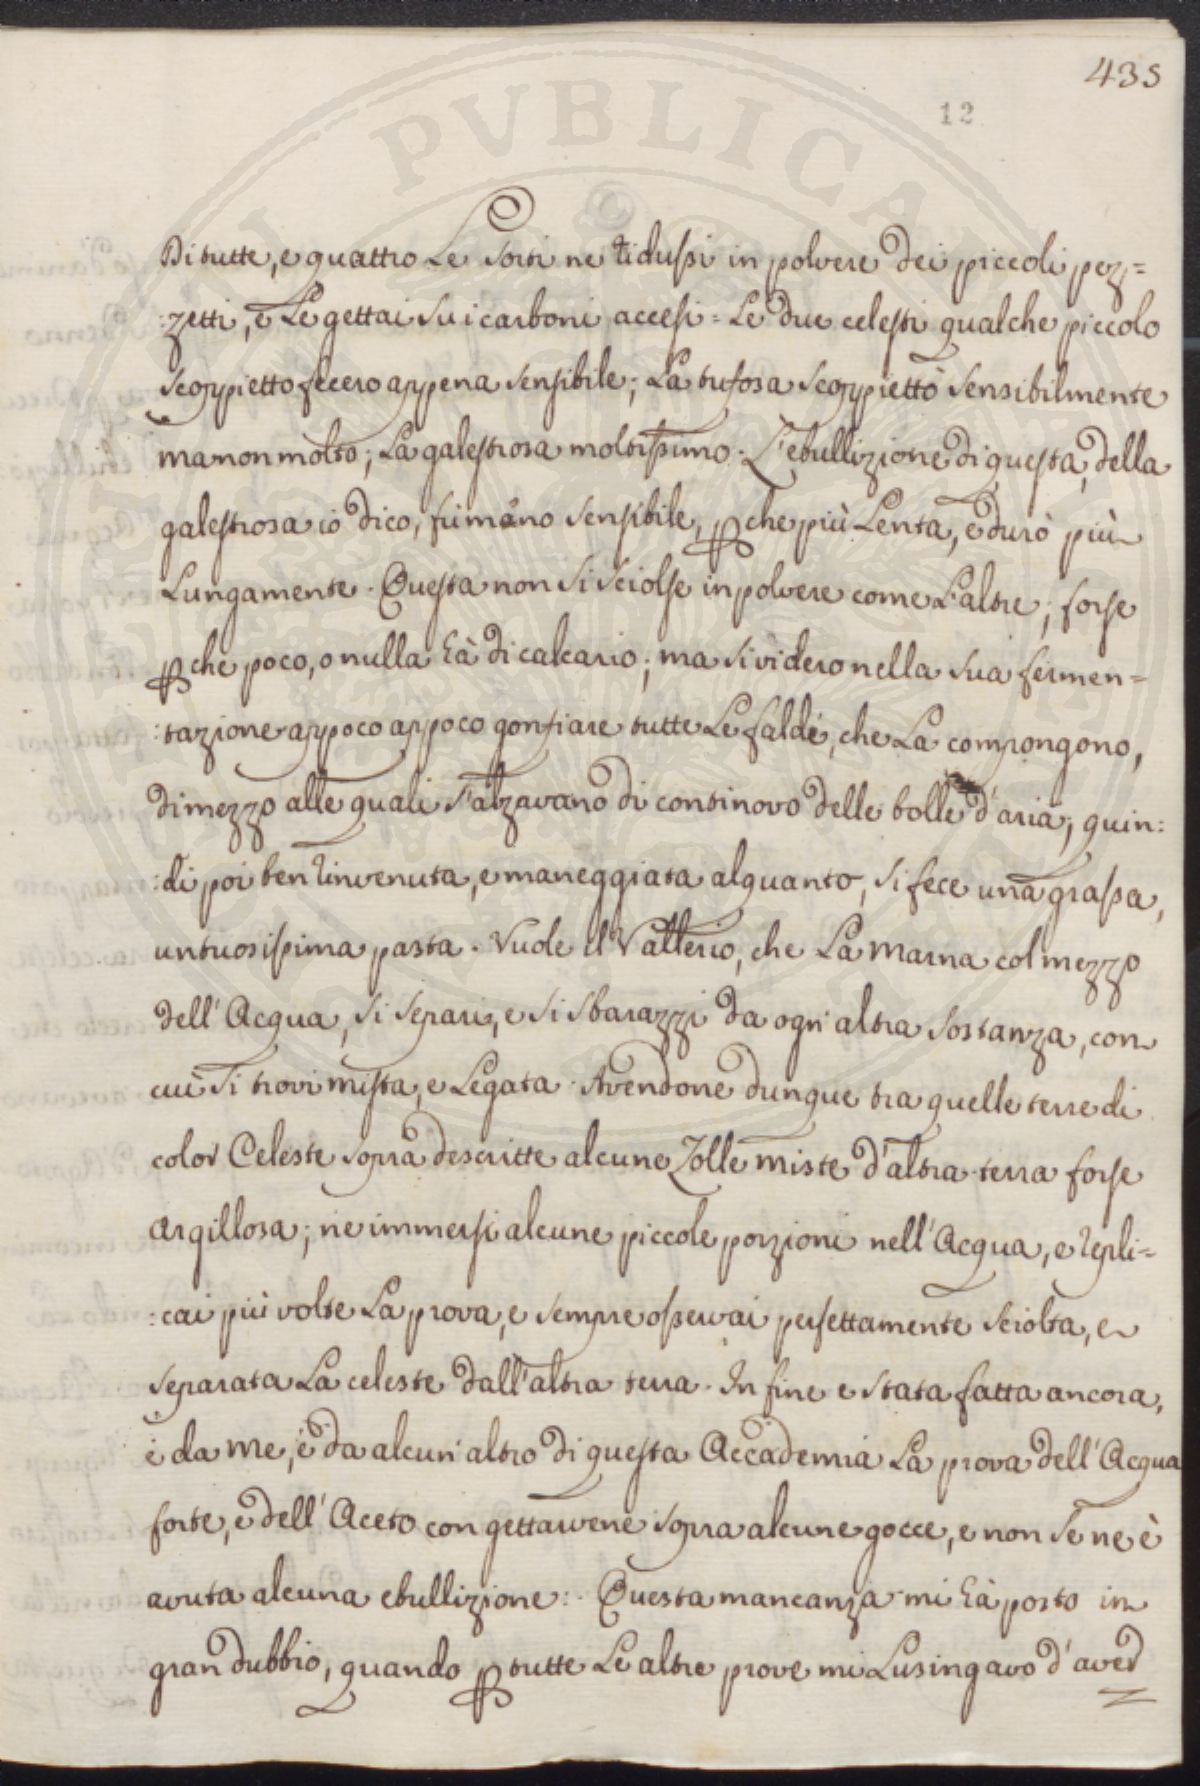 435
12
Di tutte, e quattro Le Sorti ne ridussi in polvere dei piccoli pez=
:zetti, e Le gettai Su i carboni accesi = Le due celesti qualche piccolo
scoppietto fecero appena sensibile; La tufosa scoppiettò sensibilmente
ma non molto; La galestrosa moltissimo. L'ebullizione di questa, della
galestrosa io dico, fù meno sensibile, pche più Lenta, e durò più
Lungamente. Questa non si sciolse in polvere come L'altre; forse
pche poco, o nulla hà di calcario; ma si videro nella sua fermen=
:tazione appoco appoco gonfiare tutte Le falde, che La compongono,
di mezzo alle quali s'alzavano di continovo delle bolle d'aria; quin:
:di poi ben rinvenuta, e maneggiata alquanto, si fece una grassa,
untuosissima pasta. Vuole il Vallerio, che La Marna col mezzo
dell'Acqua, si separi, e si sbarazzi da ogn'altra sostanza, con
cui si trovi mista, e Legata. Avendone dunque tra quelle terre di
color Celeste sopra descritte alcune Zolle miste d'altra terra forse
Argillosa; ne immersi alcune piccole porzioni nell'Acqua, e repli=
:cai più volte La prova, e sempre osservai perfettamente sciolta, e
separata La celeste dall'altra terra. In fine e stata fatta ancora,
e da me, e da alcun'altro di questa Accademia La prova dell'Acqua
forte, e dell'Aceto con gettarvene sopra alcune gocce, e non se ne è
avuta alcuna ebullizione: Questa mancanza mi hà posto in
gran dubbio, quando p tutte Le altre prove mi Lusingavo d'aver